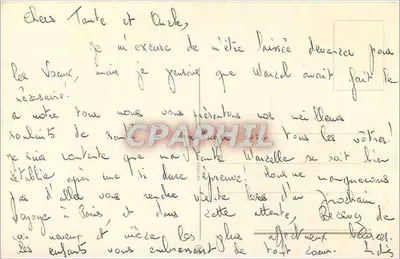 Chers Tante et Oncle,
je m'excuse de m'être laissée devancer pour
les Voeux, mais je pensais que Marcel avait fait le
nécessaire.
a notre tour nous vous présentons nos meilleurs
souhaits de santé tous les vôtres!
je suis contente que ma tante Marcelle se soit bien
établie après une si dure épreuve. Nous ne manquerons
pas d'aller vous rendre visite lors d'un prochain
voyage à Paris, et dans cette attente, Recevez de
vos neveux et nièce les plus affectueux baisers.
les enfants vous embrassent de tout coeur.
CPAPHIL